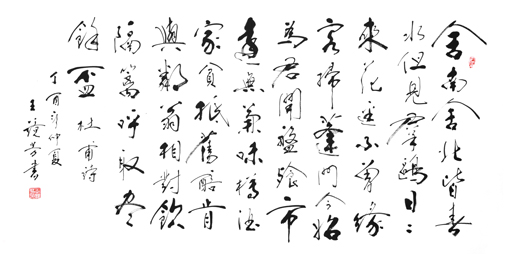 舍南舍北皆春
水但見羣鷗日々
來花徑不曾緣
客掃蓬門今始
為君開盤飧市
遠無兼味樽酒
家貧秖舊醅肯
與鄰翁相對飲
隔籬呼取盡
餘盃 杜甫詩
丁酉年仲夏
王芳書